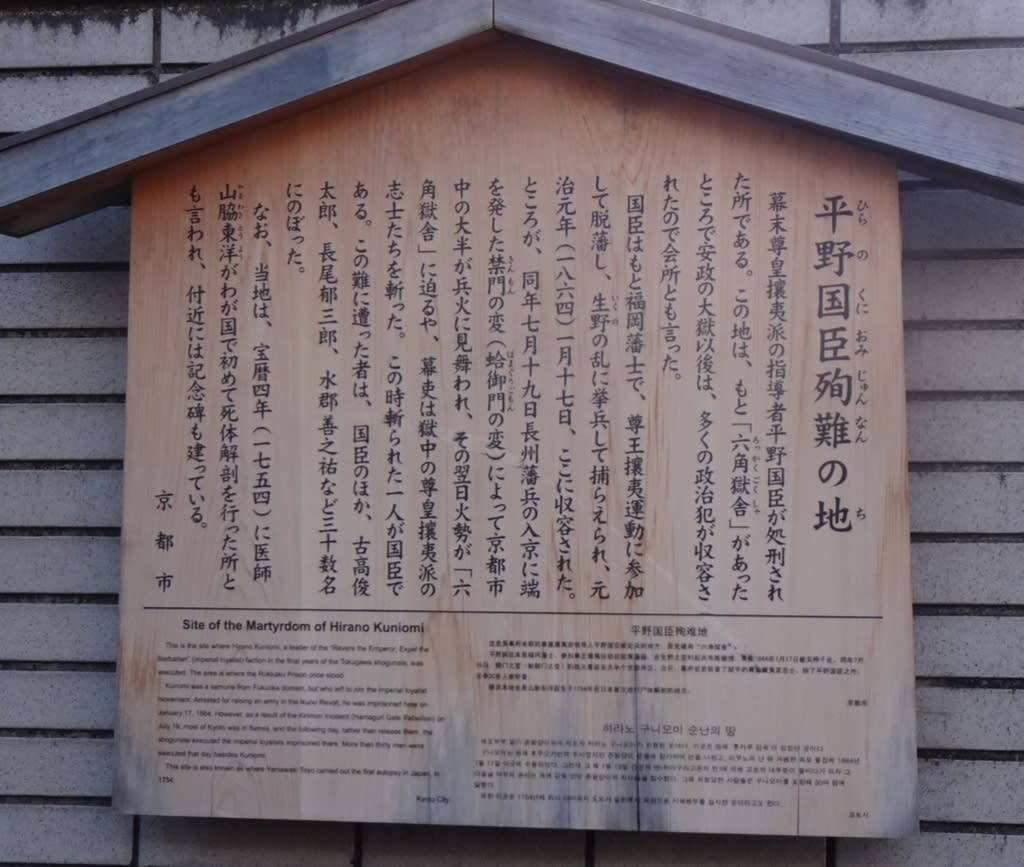 平野国臣殉難の地
ひら の くに おみ じゅん なん ち
幕末尊皇攘夷派の指導者平野国臣が処刑され
た所である。この地は、もと「六角獄舎」があった
ろっかくごくしゃ
ところで安政の大獄以後は、多くの政治犯が収容さ
れたので会所とも言った。
国臣はもと福岡藩士で、尊王攘夷運動に参加
して脱藩し、生野の乱に挙兵して捕らえられ、元
いくの
治元年（一八六四）一月十七日、ここに収容された。
ところが、同年七月十九日長州藩兵の入京に端
を発した禁門の変（蛤御門の変）によって京都市
きんもん はまぐりごもん
中の大半が兵火に見舞われ、その翌日火勢が「六
角獄舎」に迫るや、幕吏は獄中の尊皇攘夷派の
志士たちを斬った。この時斬られた一人が国臣で
ある。この難に遭った者は、国臣のほか、古高俊
太郎、長尾郁三郎、水郡善之祐など三十数名
にのぼった。
なお、当地は、宝暦四年（一七五四）に医師
山脇東洋がわが国で初めて死体解剖を行った所と
やまわきとうよう
も言われ、付近には記念碑も建っている。
京都市
Site of the Martyrdom of Hirano Kuniomi
This is the site where Hirano Kuniomi, a leader of the "Revere the Emperor, Expel the
Barbarian" (imperial loyalist) faction in the final years of the Tokugawa shogunate, was
executed. The area is where the Rokkaku Prison once stood.
Kuniomi was a samurai from Fukuoka domain, but who left to join the imperial loyalist
movement. Arrested for raising an army in the Ikuno Revolt, he was imprisoned here on
January 17, 1864. However, as a result of the Kinmon Incident (Hamaguri Gate Rebellion) on
July 19, most of Kyoto was in flames, and the following day, rather than release them, the
shogunate executed the imperial loyalists imprisoned there. More than thirty men were
executed that day besides Kuniomi.
This site is also known as where Yamawaki Toyo carried out the first autopsy in Japan, in
1754
Kyoto City
平野国臣殉难地
京都市
히라노 구니오미 순난의 땅
교토시